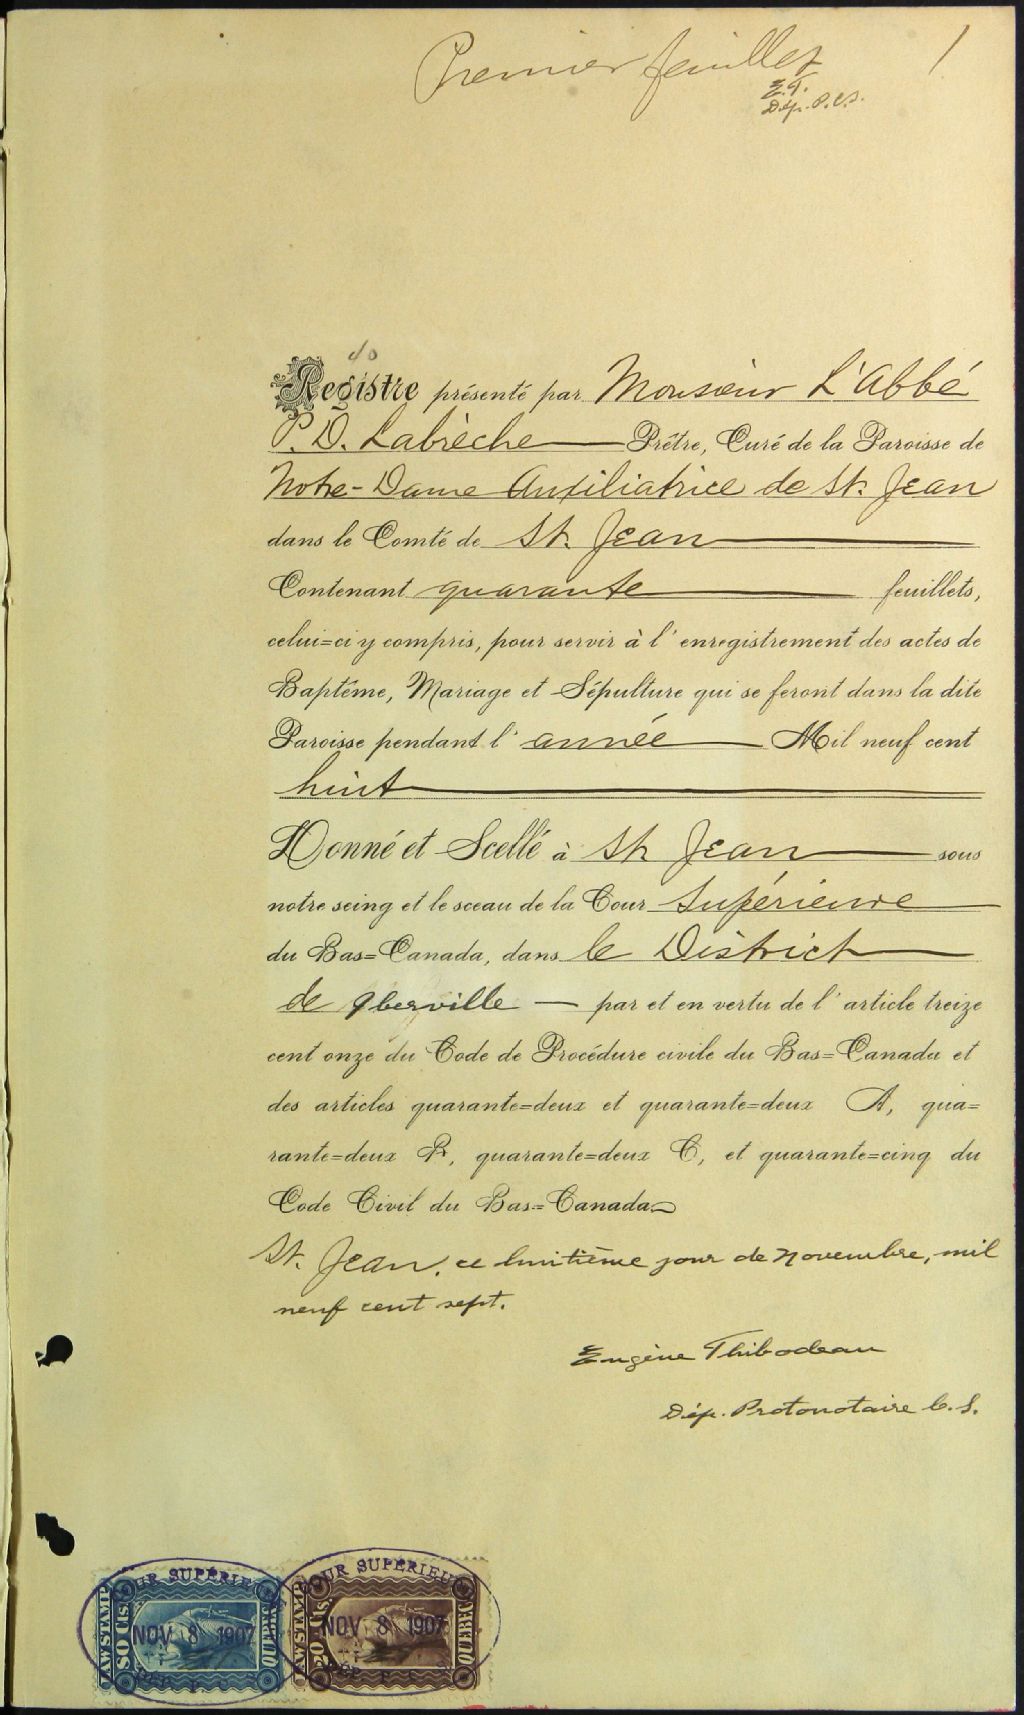 Premier feuillet 1
E.T.
Dép. P.C.S.
40
Registre présenté par Monsieur L'Abbé
P. D. Labrèche Prêtre, Curé de la Paroisse de
Notre-Dame Auxiliatrice de St. Jean
dans le Comté de St. Jean
Contenant quarante feuillets,
celui=ci y compris, pour servir à l'enregistrement des actes de
Baptême, Mariage et Sépulture qui se feront dans la dite
Paroisse pendant l'année Mil neuf cent
huit
Donné et Scellé à St Jean sous
notre seing et le sceau de la Cour Supérieure
du Bas=Canada, dans le District
de Iberville — par et en vertu de l'article treize
cent onze du Code de Procédure civile du Bas=Canada et
des articles quarante=deux et quarante=deux A, qua=
rante=deux B, quarante=deux C, et quarante=cinq du
Code Civil du Bas=Canada
St. Jean, ce huitième jour de novembre, mil
neuf cent sept.
Eugène Thibodeau
Dép. Protonotaire C. S.
COUR SUPÉRIEURE
LAW STAMP
50 Cts.
QUEBEC
NOV 8 1907
COUR SUPÉRIEURE
LAW STAMP
20 Cts.
QUEBEC
NOV 8 1907